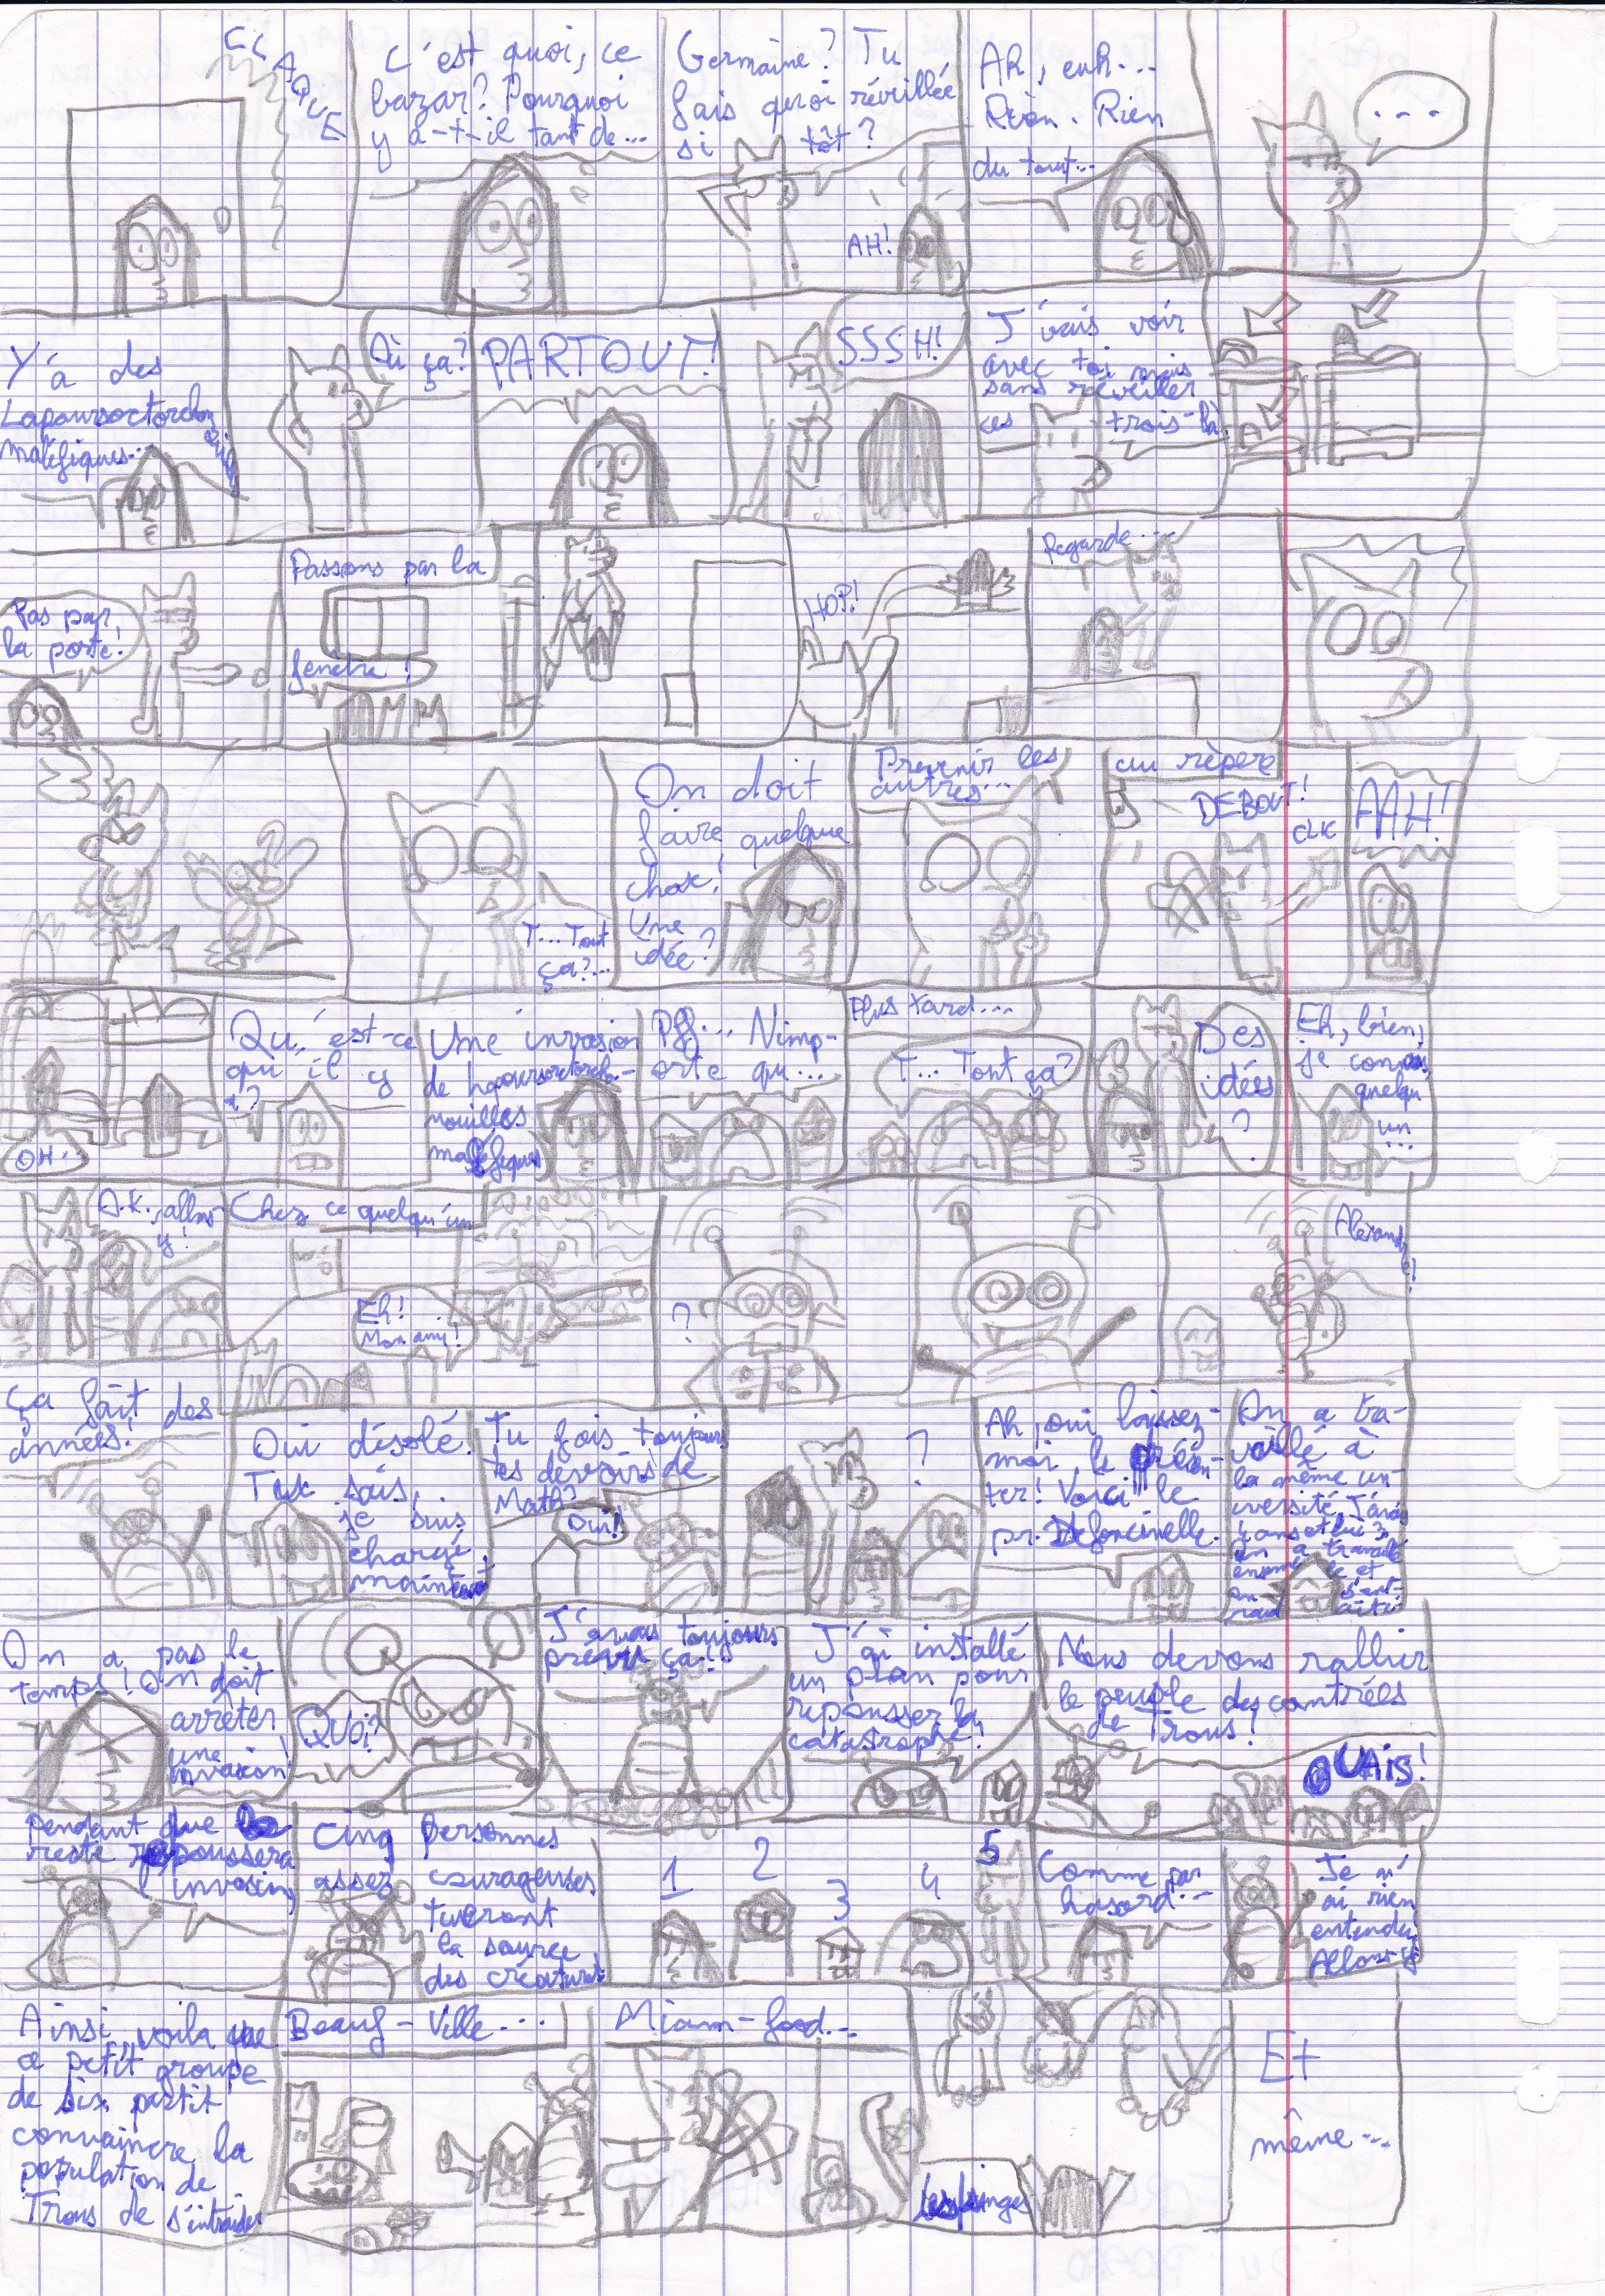 CLAQUE
C'est quoi, ce
bazar? Pourquoi
y a-t-il tant de...
Germaine? Tu
fais quoi réveillée
si tôt?
AH!
Ah, euh...
Rien. Rien
du tout...
...
Y'a des
maléfiques...
Où ça?
PARTOUT!
SSSH!
J'vais voir
avec toi mais
sans réveiller
ces trois-là.
Pas par
la porte!
Passons par la
fenêtre!
HOP!
Regarde...
T... Tout
ça?...
On doit
faire quelque
chose!
Une
idée?
Prévenir les
autres...
au repère
DEBOUT!
CLIC
AAH!
OH...
Qu'est-ce
qu'il y
a?
Une invasion
de
maléfiques
Pff... Nimp-
orte qu...
Plus tard...
T... Tout ça?
Des
idées
?
Eh, bien,
je connais
quelqu'
un...
O.K., allons
y!
Chez ce quelqu'un
Eh!
Mon ami!
?
Alexandre!
Ça fait des
années!
Oui désolé.
Tu sais,
je suis
chargé
maintenant
Tu fais toujours
tes devoirs de
Maths?
Oui!
?
Ah, oui laissez-
moi le présen-
ter! Voici le
pr. Defoncinelle.
On a tra-
vaillé à
la même un-
iversité. J'avais
4 ans et lui 3,
on a travaillé
ensemble et
on
On a pas le
temps! On doit
arrêter
une
invasion!
QUOI?
J'avais toujours
prévu ça!!
J'ai installé
un plan pour
repousser la
catastrophe!
Nous devons rallier
le peuple des contrées
de Trous!
OUAIS!
Pendant que le
reste repoussera
l'invasion,
Cinq personnes
assez courageuses
tueront
la source
des créatures
1
2
3
4
5
Comme par
hasard...
Je n'
ai rien
entendu
Allons-y
Ainsi, voilà que
ce petit groupe
de six partit
convaincre la
population de
Trous de s'entraider
Beauf-Ville...
Miam-food...
les singes
Et
même...